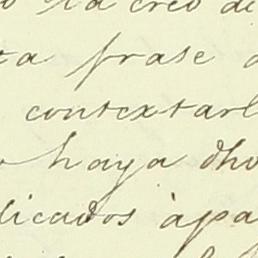 la creo de
ta frase
contextarl
haya dho
licados àpa